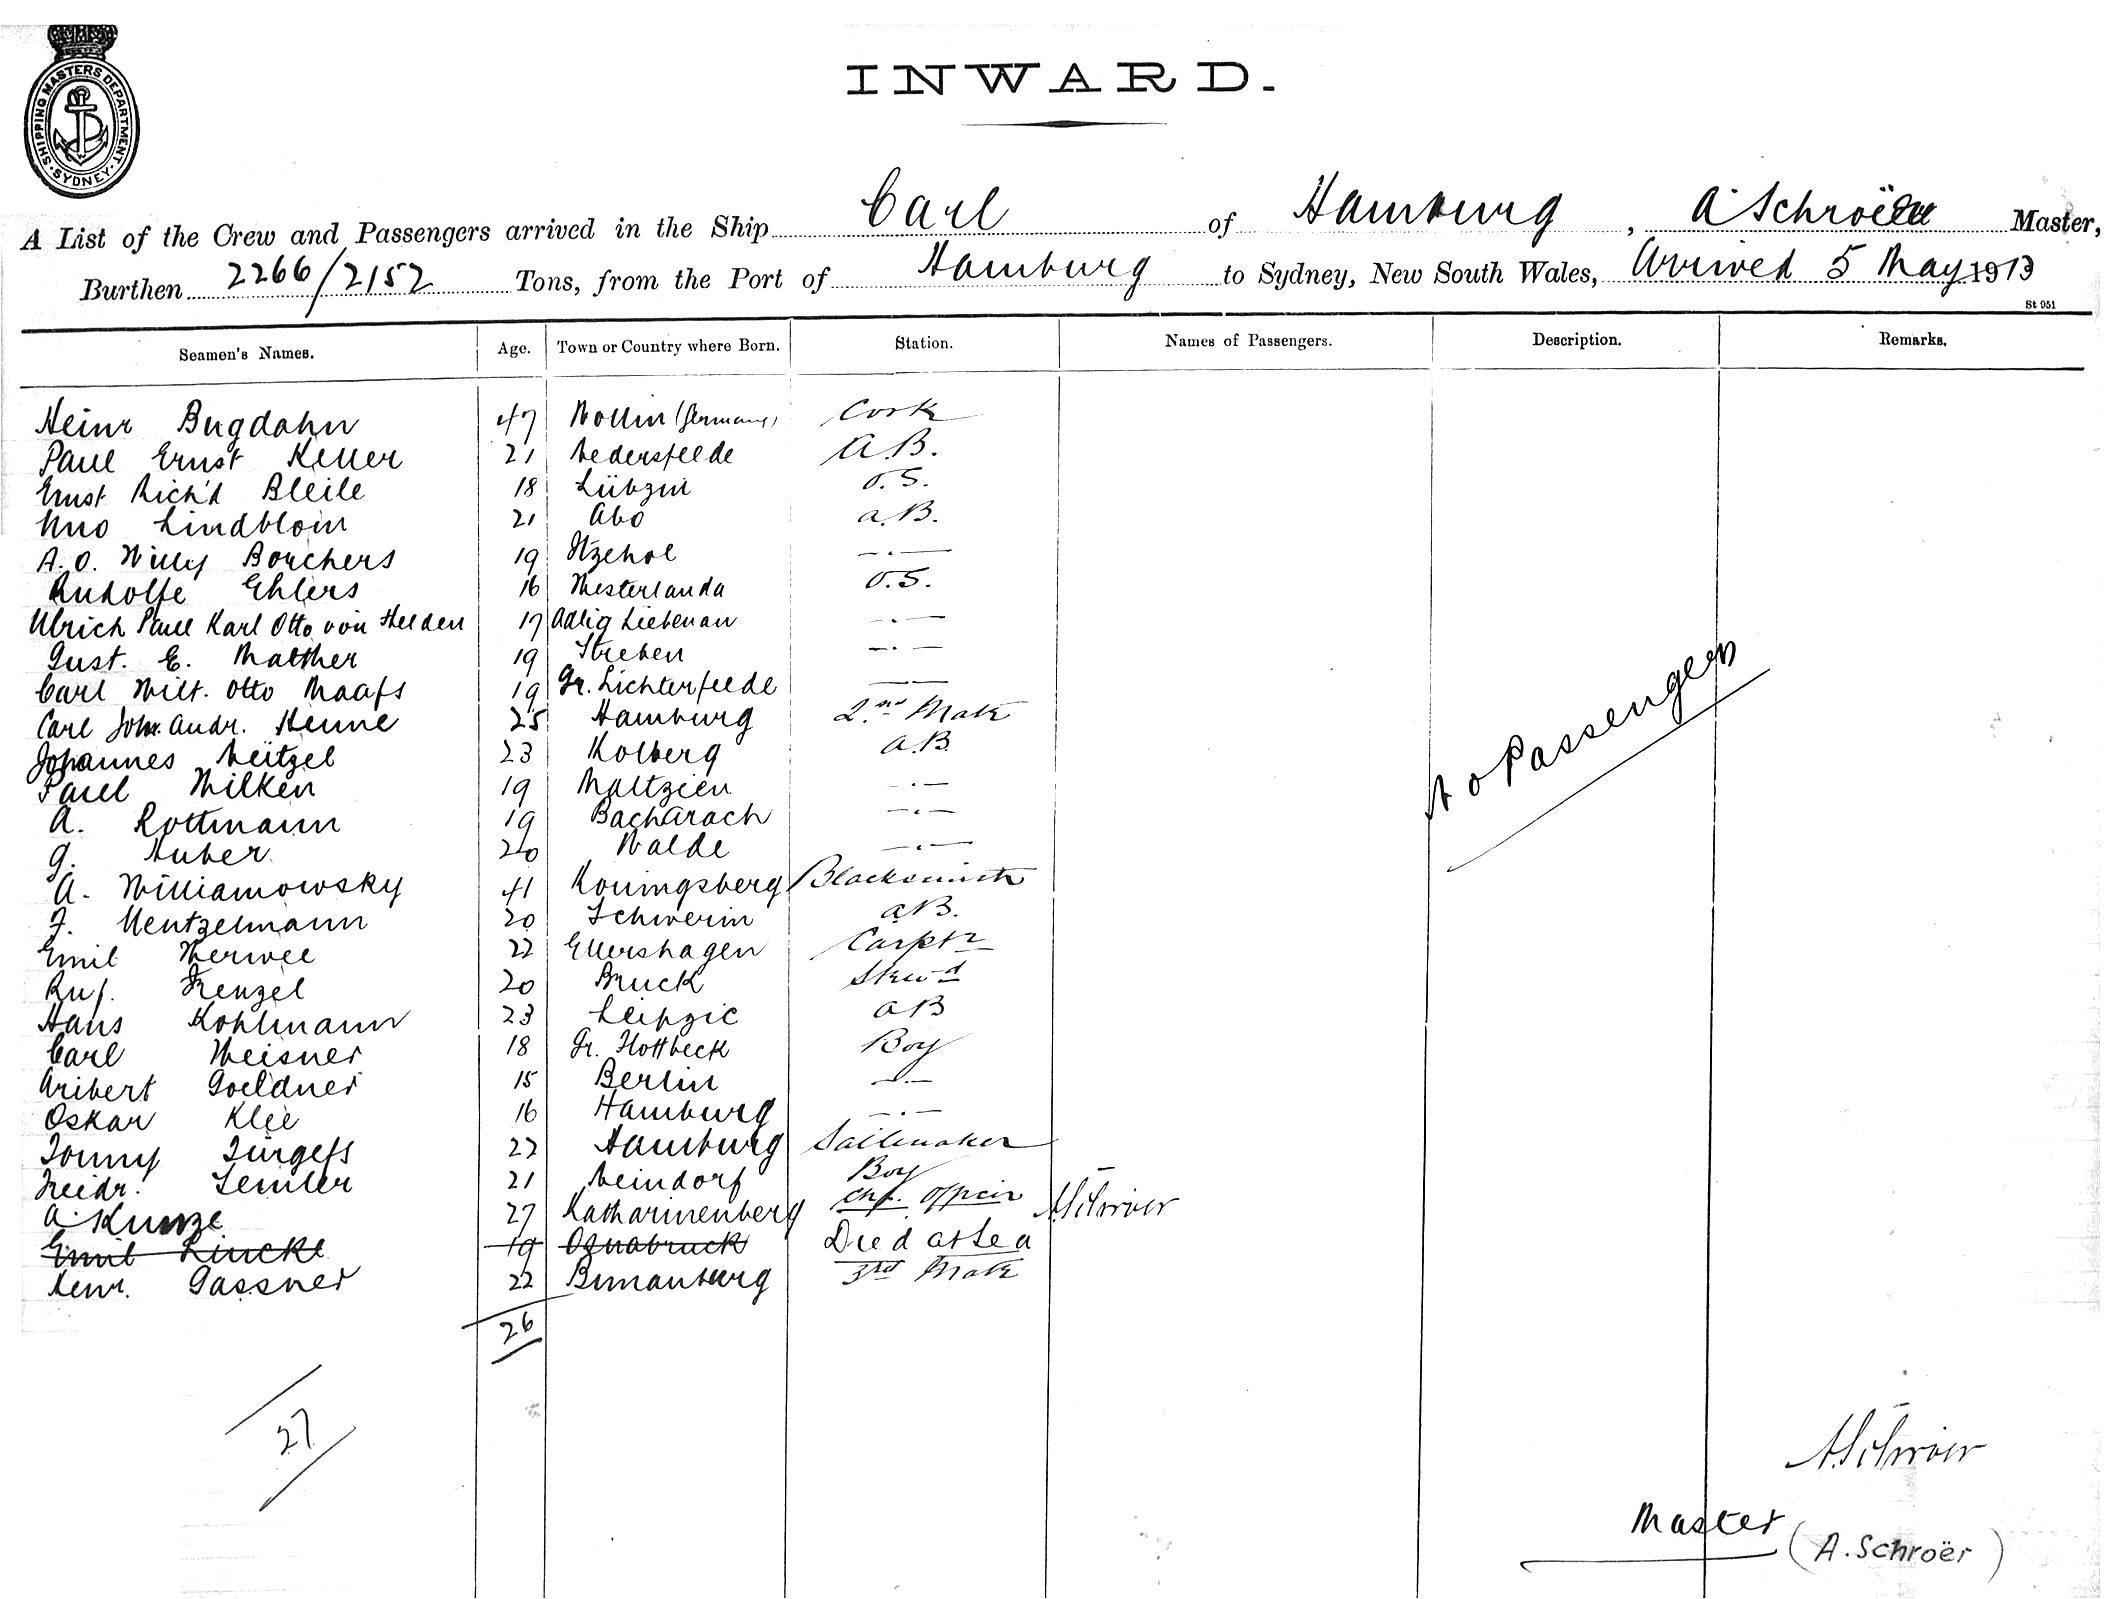 SHIPPING MASTERS DEPARTMENT · SYDNEY ·
INWARD.
A List of the Crew and Passengers arrived in the Ship Carl of Hamburg, A Schroëer Master,
Burthen 2266/2152 Tons, from the Port of Hamburg to Sydney, New South Wales, Arrived 5 May 1913
St 951
Seamen's Names. Age. Town or Country where Born. Station. Names of Passengers. Description. Remarks.
Heinr Bugdahn 47 Wollin (Germany) Cook
Paul Ernst Keller 21 Nedersfelde A.B.
Ernst Rich'd Bleile 18 Lübzin O.S.
Uno Lindblom 21 Abo A.B.
A.O. Willy Borchers 19 Itzehoe —.—
Rudolfe Ehlers 16 Westerlanda O.S.
Ulrich Paul Karl Otto von Helden 17 Adlig Liebenau —.—
Gust. E. Malther 19 Streben —.—
Carl Wilt. Otto Maafs 19 Gr. Lichterfelde —.—
Carl Joh. Andr. Henne 25 Hamburg 2nd Mate
Johannes Neitzel 23 Kolberg A.B.
Paul Wilken 19 Maltzien —.—
A. Rottmann 19 Bacharach —.—
G. Huber 20 Walde —.—
A. Williamowsky 41 Koningsberg Blacksmith
F. Mentzelmann 20 Schwerin A.B.
Emil Merwee 22 Ellershagen Carptr
Ruf. Frenzel 20 Bruck Stew-d
Hans Kohlmann 23 Leipzic AB
Carl Meisner 18 Gr. Flottbeck Boy
Aribert Goeldner 15 Berlin —.—
Oskar Klee 16 Hamburg —.—
Jonny Jürgefs 22 Hamburg Sailmaker
Freidr. Semler 21 Neindorf Boy
A. Kunze 27 Katharinenberg Chf. Officer ASchröer
Emil Lincke 19 Osnabruck Died at Sea
Henr. Gassner 22 Bunanburg 3rd Mate
No Passengers
26
27
ASchröer
Master (A. Schroër)